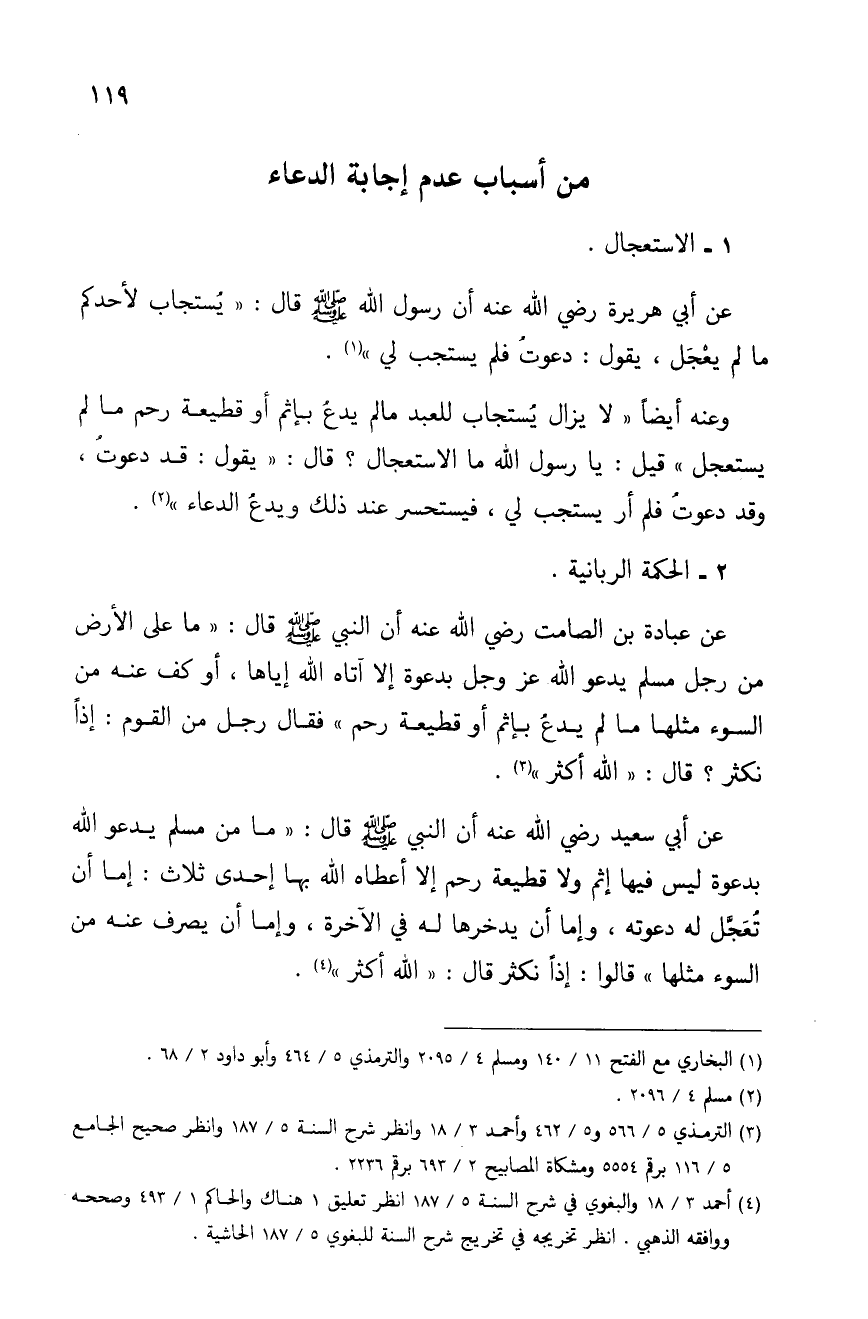 ١١٩
من أسباب عدم إجابة الدعاء
١ ـ الاستعجال .
عن أبي هريرة رضي الله عنه أن رسول الله ﷺ قال : « يُستجاب لأحدكم
ما لم يعْجَل ، يقول : دعوتُ فلم يستجب لي »(١) .
وعنه أيضاً « لا يزال يُستجاب للعبد مالم يدعُ بـإثم أو قطيعـة رحم مـا لم
يستعجل » قيل : يا رسول الله ما الاستعجال ؟ قال : « يقول : قـد دعوتُ ،
وقد دعوتُ فلم أر يستجب لي ، فيستحسر عند ذلك ويدعُ الدعاء »(٢) .
٢ ـ الحكمة الربانية .
عن عبادة بن الصامت رضي الله عنه أن النبي ﷺ قال : « ما على الأرض
من رجل مسلم يدعو الله عز وجل بدعوة إلا آتاه الله إياها ، أو كف عنـه من
السـوء مثلهـا مـا لم يـدعُ بـإثم أو قطيعـة رحم » فقـال رجـل من القـوم : إذاً
نكثر ؟ قال : « الله أكثر »(٣) .
عن أبي سعيد رضي الله عنه أن النبي ﷺ قال : « مـا من مسلم يـدعو الله
بدعوة ليس فيها إثم ولا قطيعة رحم إلا أعطاه الله بهـا إحـدى ثلاث : إمـا أن
تُعَجَّل له دعوته ، وإما أن يدخرها لـه في الآخرة ، وإمـا أن يصرف عنـه من
السوء مثلها » قالوا : إذاً نكثر قال : « الله أكثر »(٤) .
(١) البخاري مع الفتح ١١ / ١٤٠ ومسلم ٤ / ٢٠٩٥ والترمذي ٥ / ٤٦٤ وأبو داود ٢ / ٦٨ .
(٢) مسلم ٤ / ٢٠٩٦ .
(٣) الترمـذي ٥ / ٥٦٦ و٥ / ٤٦٢ وأحمـد ٣ / ١٨ وانظر شرح السنـة ٥ / ١٨٧ وانظر صحيح الجـامـع
٥ / ١١٦ برقم ٥٥٥٤ ومشكاة المصابيح ٢ / ٦٩٣ برقم ٢٢٣٦ .
(٤) أحمد ٣ / ١٨ والبغوي في شرح السنـة ٥ / ١٨٧ انظر تعليق ١ هنـاك والحـاكم ١ / ٤٩٣ وصححـه
ووافقه الذهبي . انظر تخريجه في تخريج شرح السنة للبغوي ٥ / ١٨٧ الحاشية .